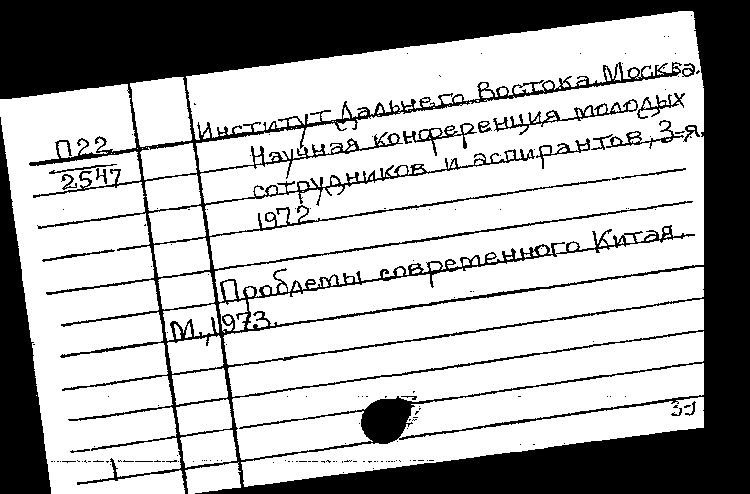 П22
2547
Институт Дальнего Востока. Москва.
Научная конференция молодых
сотрудников и аспирантов, 3-я.
1972.
Проблемы современного Китая.
М., 1973.